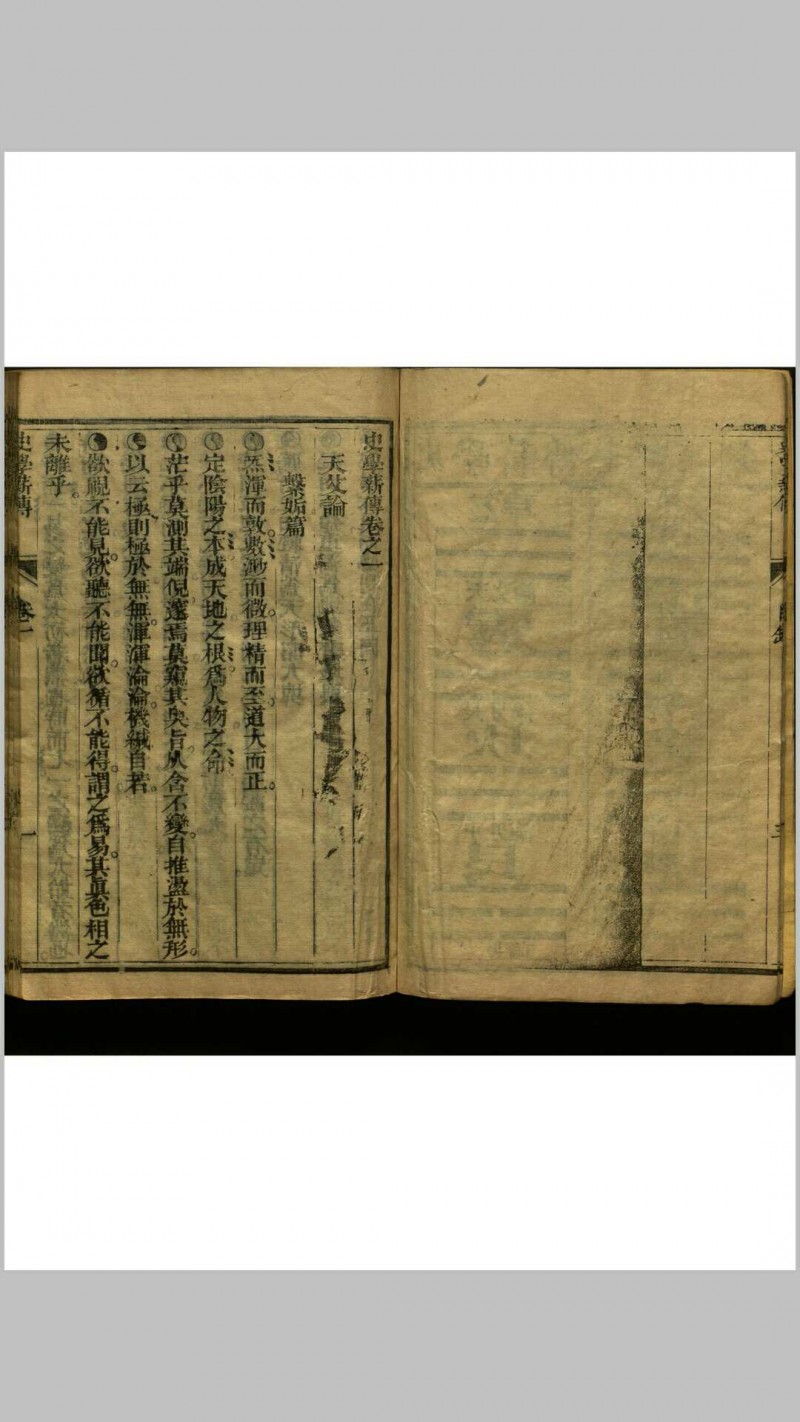 目錄
三
史學薪傳卷之一
天文論
繫姤篇
炁渾而敦敷渺而微理精而至道大而正。
定陰陽之本成天地之根爲人物之命
茫乎莫測其端倪邃焉莫窺其奥旨从含不變自推盪於無形。
以云極則極於無無。渾渾淪淪機緘自若。
欲視不能見。欲聽不能聞。欲循不能得。謂之爲易。其眞色相之
未離乎。
史學薪傳
卷一
一